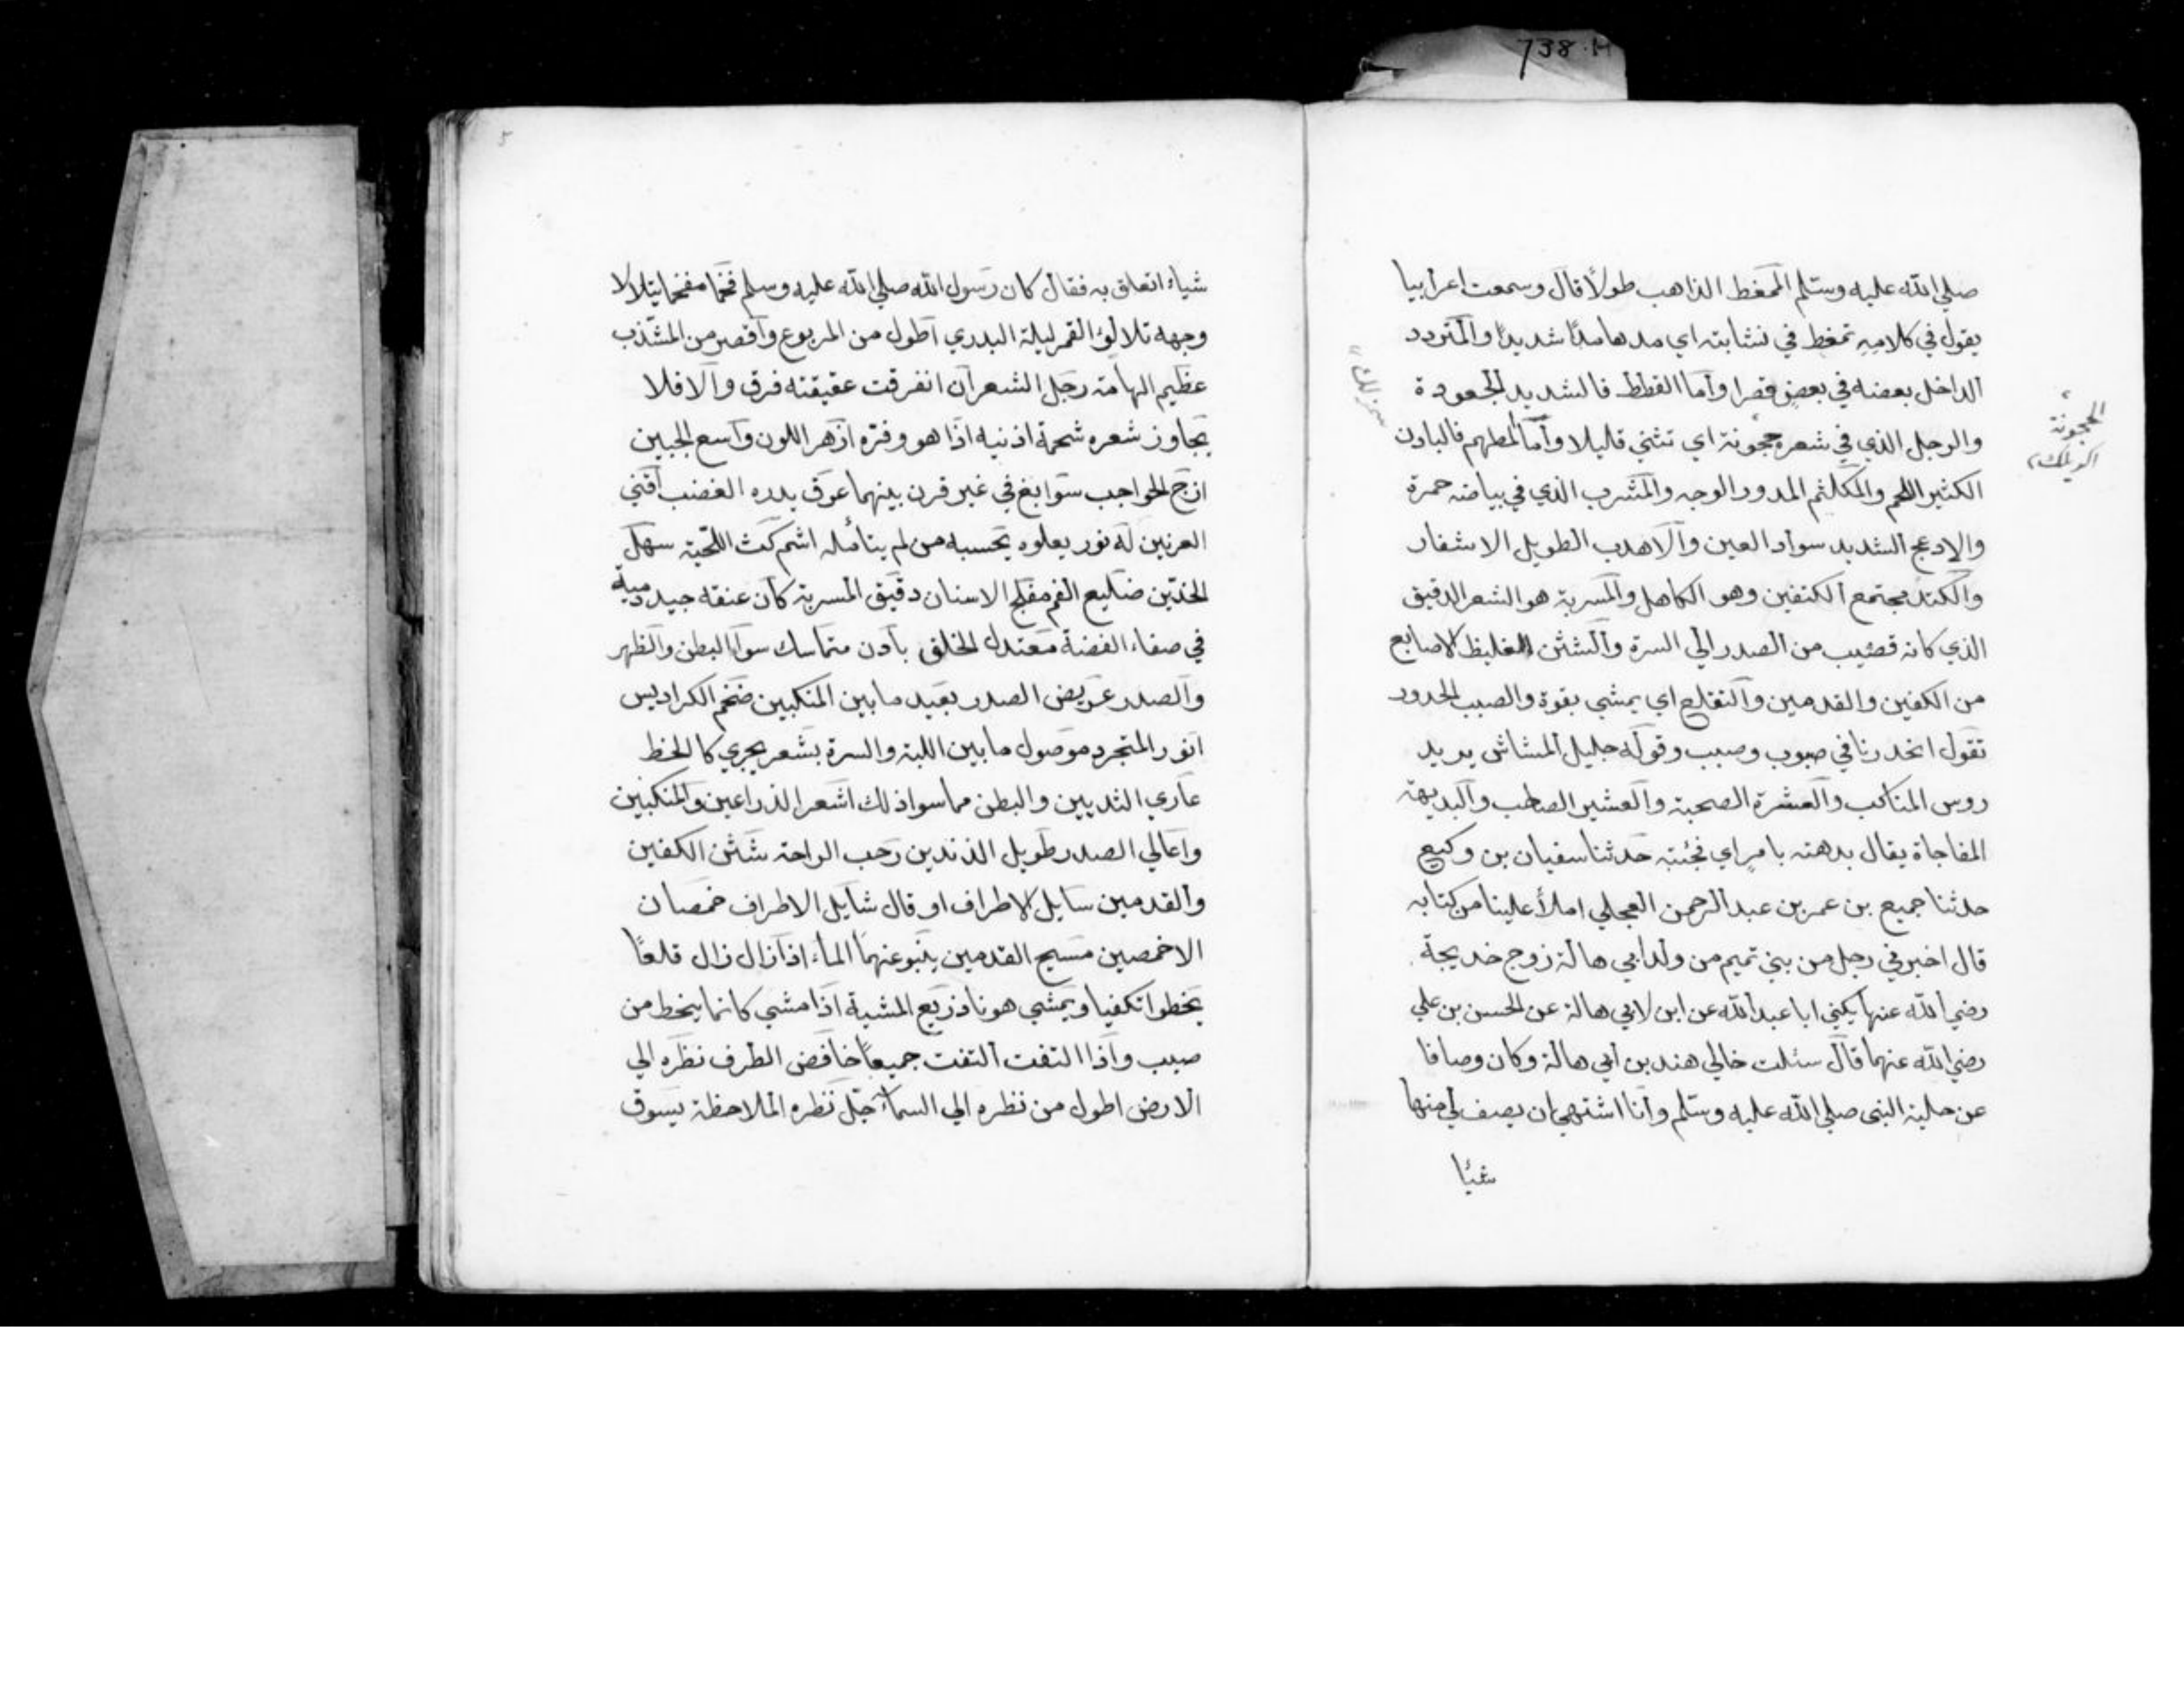 738.H
صلي الله عليه وسلم الممغط الذاهب طولا قال وسمعت اعرابيا
يقول في كلامه تمغط في نشابته اي مدها مدا شديدا والمتردد
الداخل بعضه في بعض قصرا واما القطط فالشديد الجعودة
والرجل الذي في شعره حجونة اي تثني قليلا واما المطهم فالبادن
الكثير اللحم والمكلثم المدور الوجه والمشرب الذي في بياضه حمرة
والادعج الشديد سواد العين والاهدب الطويل الاشفار
والكتد مجتمع الكتفين وهو الكاهل والمسربة هو الشعر الدقيق
الذي كانه قضيب من الصدر الي السرة والششن الغليظ الاصابع
من الكفين والقدمين والتقلع اي يمشي بقوة والصبب الحدور
تقول انحدرنا في صبوب وصبب وقوله جليل المشاش يريد
روس المناكب والعشرة الصحبة والعشير الصاحب والبديهة
المفاجاة يقال بدهته بامر اي فجئته حدثنا سفيان بن وكيع
حدثنا جميع بن عمر بن عبد الرحمن العجلي املأ علينا من كتابه
قال اخبرني رجل من بني تميم من ولد ابي هالة زوج خديجة
رضي الله عنها يكني ابا عبد الله عن ابن لابي هالة عن الحسن بن علي
رضي الله عنهما قال سئلت خالي هند بن ابي هالة وكان وصافا
عن حلية النبي صلي الله عليه وسلم وانا اشتهي ان يصف لي منها
شئا
الحجونة
شياء اتعلق به فقال كان رسول الله صلي الله عليه وسلم فخما مفخما يتلالا
وجهه تلالؤ القمر ليلة البدري اطول من المربوع واقصر من المشذب
عظيم الهامة رجل الشعر ان انفرقت عقيقته فرق والا فلا
يجاوز شعره شحمة اذنيه اذا هو وفره ازهر اللون واسع الجبين
ازج الحواجب سوابغ في غير قرن بينهما عرق يدره الغضب اقني
العرنين له نور يعلوه يحسبه من لم يتأمله اشم كث اللحية سهل
الخدين ضليع الفم مفلج الاسنان دقيق المسربة كان عنقه جيد دمية
في صفاء الفضة معتدل الخلق بادن متماسك سوا البطن والظهر
والصدر عريض الصدر بعيد ما بين المنكبين ضخم الكراديس
انور المتجرد موصول ما بين اللبة والسرة بشعر يجري كالخط
عاري الثديين والبطن مما سوا ذلك اشعر الذراعين والمنكبين
واعالي الصدر طويل الذندين رحب الراحة شثن الكفين
والقدمين سايل الاطراف او قال شايل الاطراف خمصان
الاخمصين مسيح القدمين ينبو عنهما الماء اذا زال زال قلعا
يخطوا تكفيا ويمشي هونا ذريع المشية اذا مشي كانما ينحط من
صبب واذا التفت التفت جميعا خافض الطرف نظره الي
الارض اطول من نظره الي السماء جل نظره الملاحظة يسوق